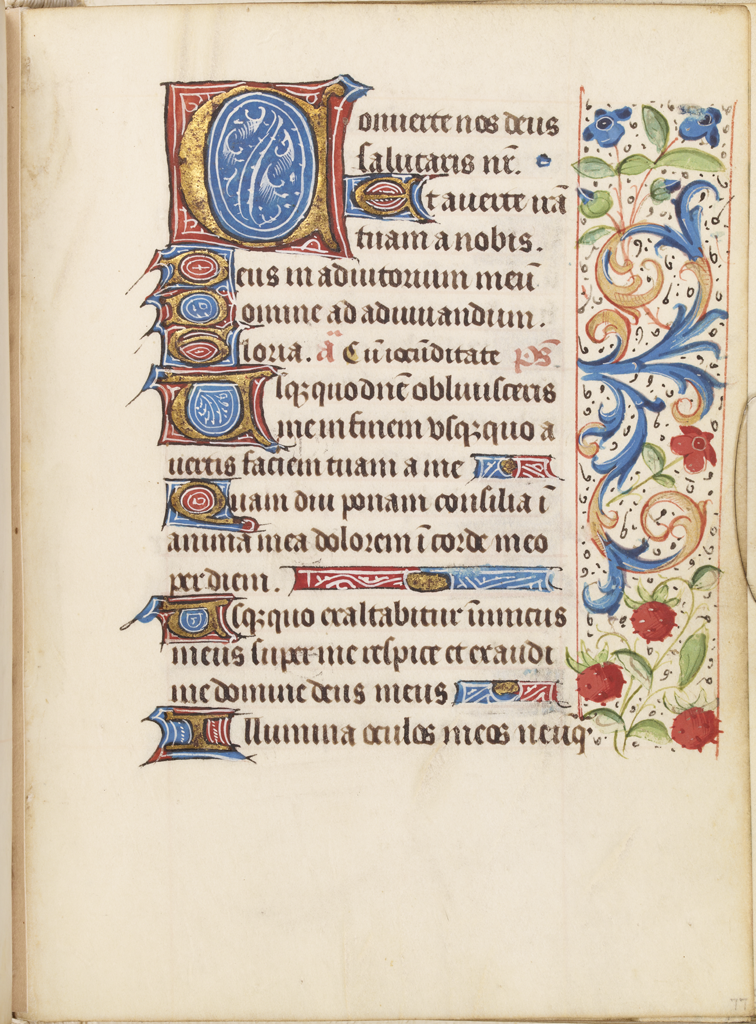 Conuerte nos deus
salutaris nr̄.
Et auerte irā
tuam a nobis.
Deus in adiutorium meū
Domine ad adiuuandum.
Gloria. a Cū iocūditate ps
Usqꝫquo dnē obliuisceris
me in finem vsqꝫquo a
uertis faciem tuam a me
Quam diu ponam consilia ī
anima mea dolorem ī corde meo
per diem.
Usqꝫquo exaltabitur inimicus
meus super me respice et exaudi
me domine deus meus
Illumina oculos meos neuqꝫ
77